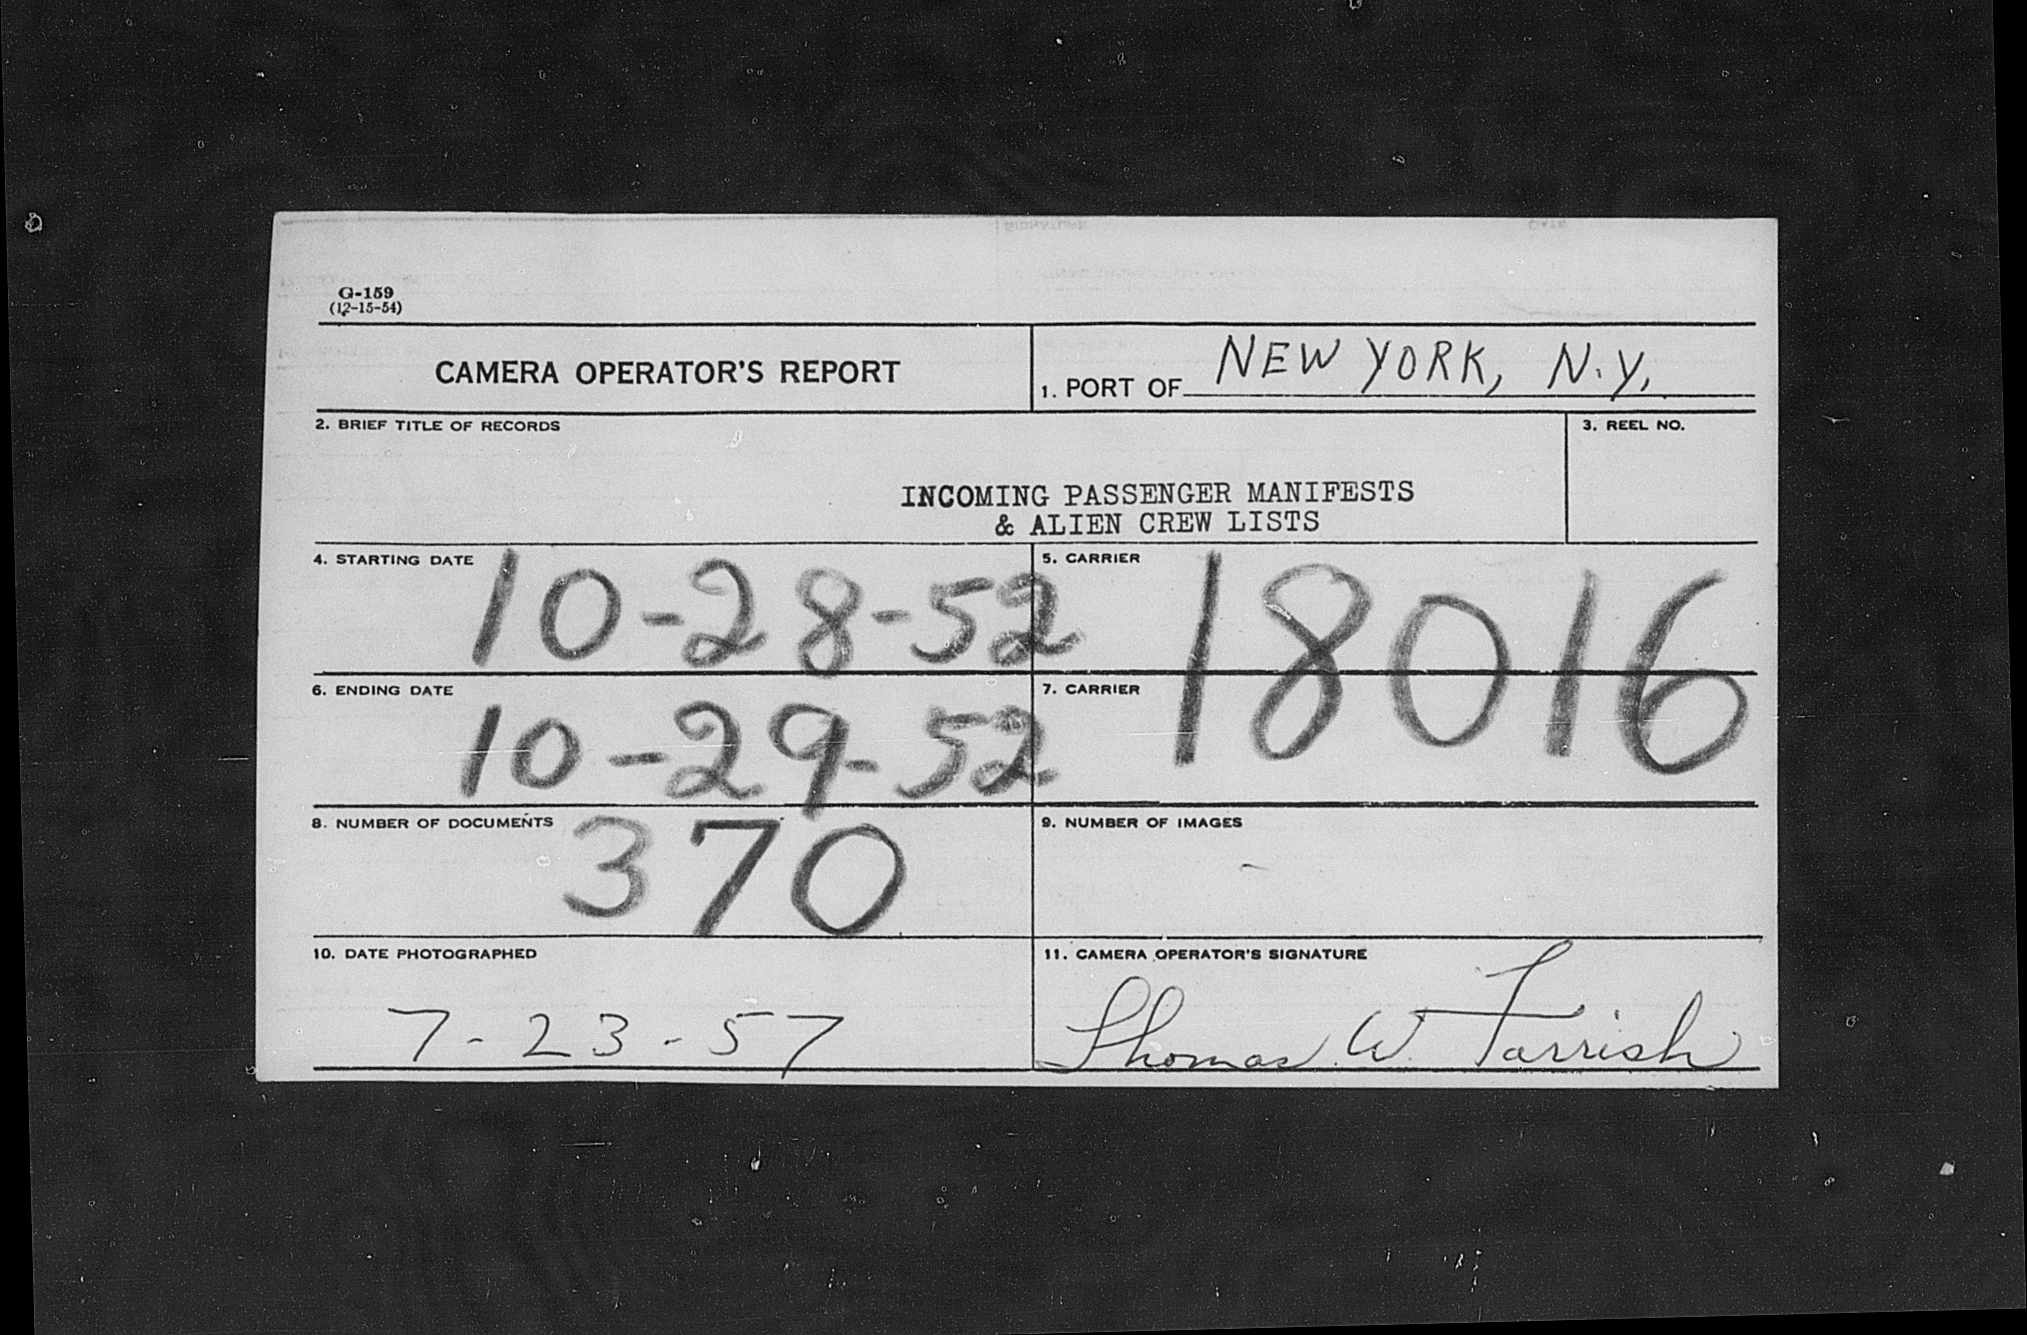 G-159
(12-15-54)
CAMERA OPERATOR'S REPORT
1. PORT OF NEW YORK, N.Y.
2. BRIEF TITLE OF RECORDS
3. REEL NO.
INCOMING PASSENGER MANIFESTS
& ALIEN CREW LISTS
4. STARTING DATE 10-28-52
5. CARRIER 18016
6. ENDING DATE 10-29-52
7. CARRIER
8. NUMBER OF DOCUMENTS 370
9. NUMBER OF IMAGES
10. DATE PHOTOGRAPHED
7-23-57
11. CAMERA OPERATOR'S SIGNATURE
Thomas W. Farrish